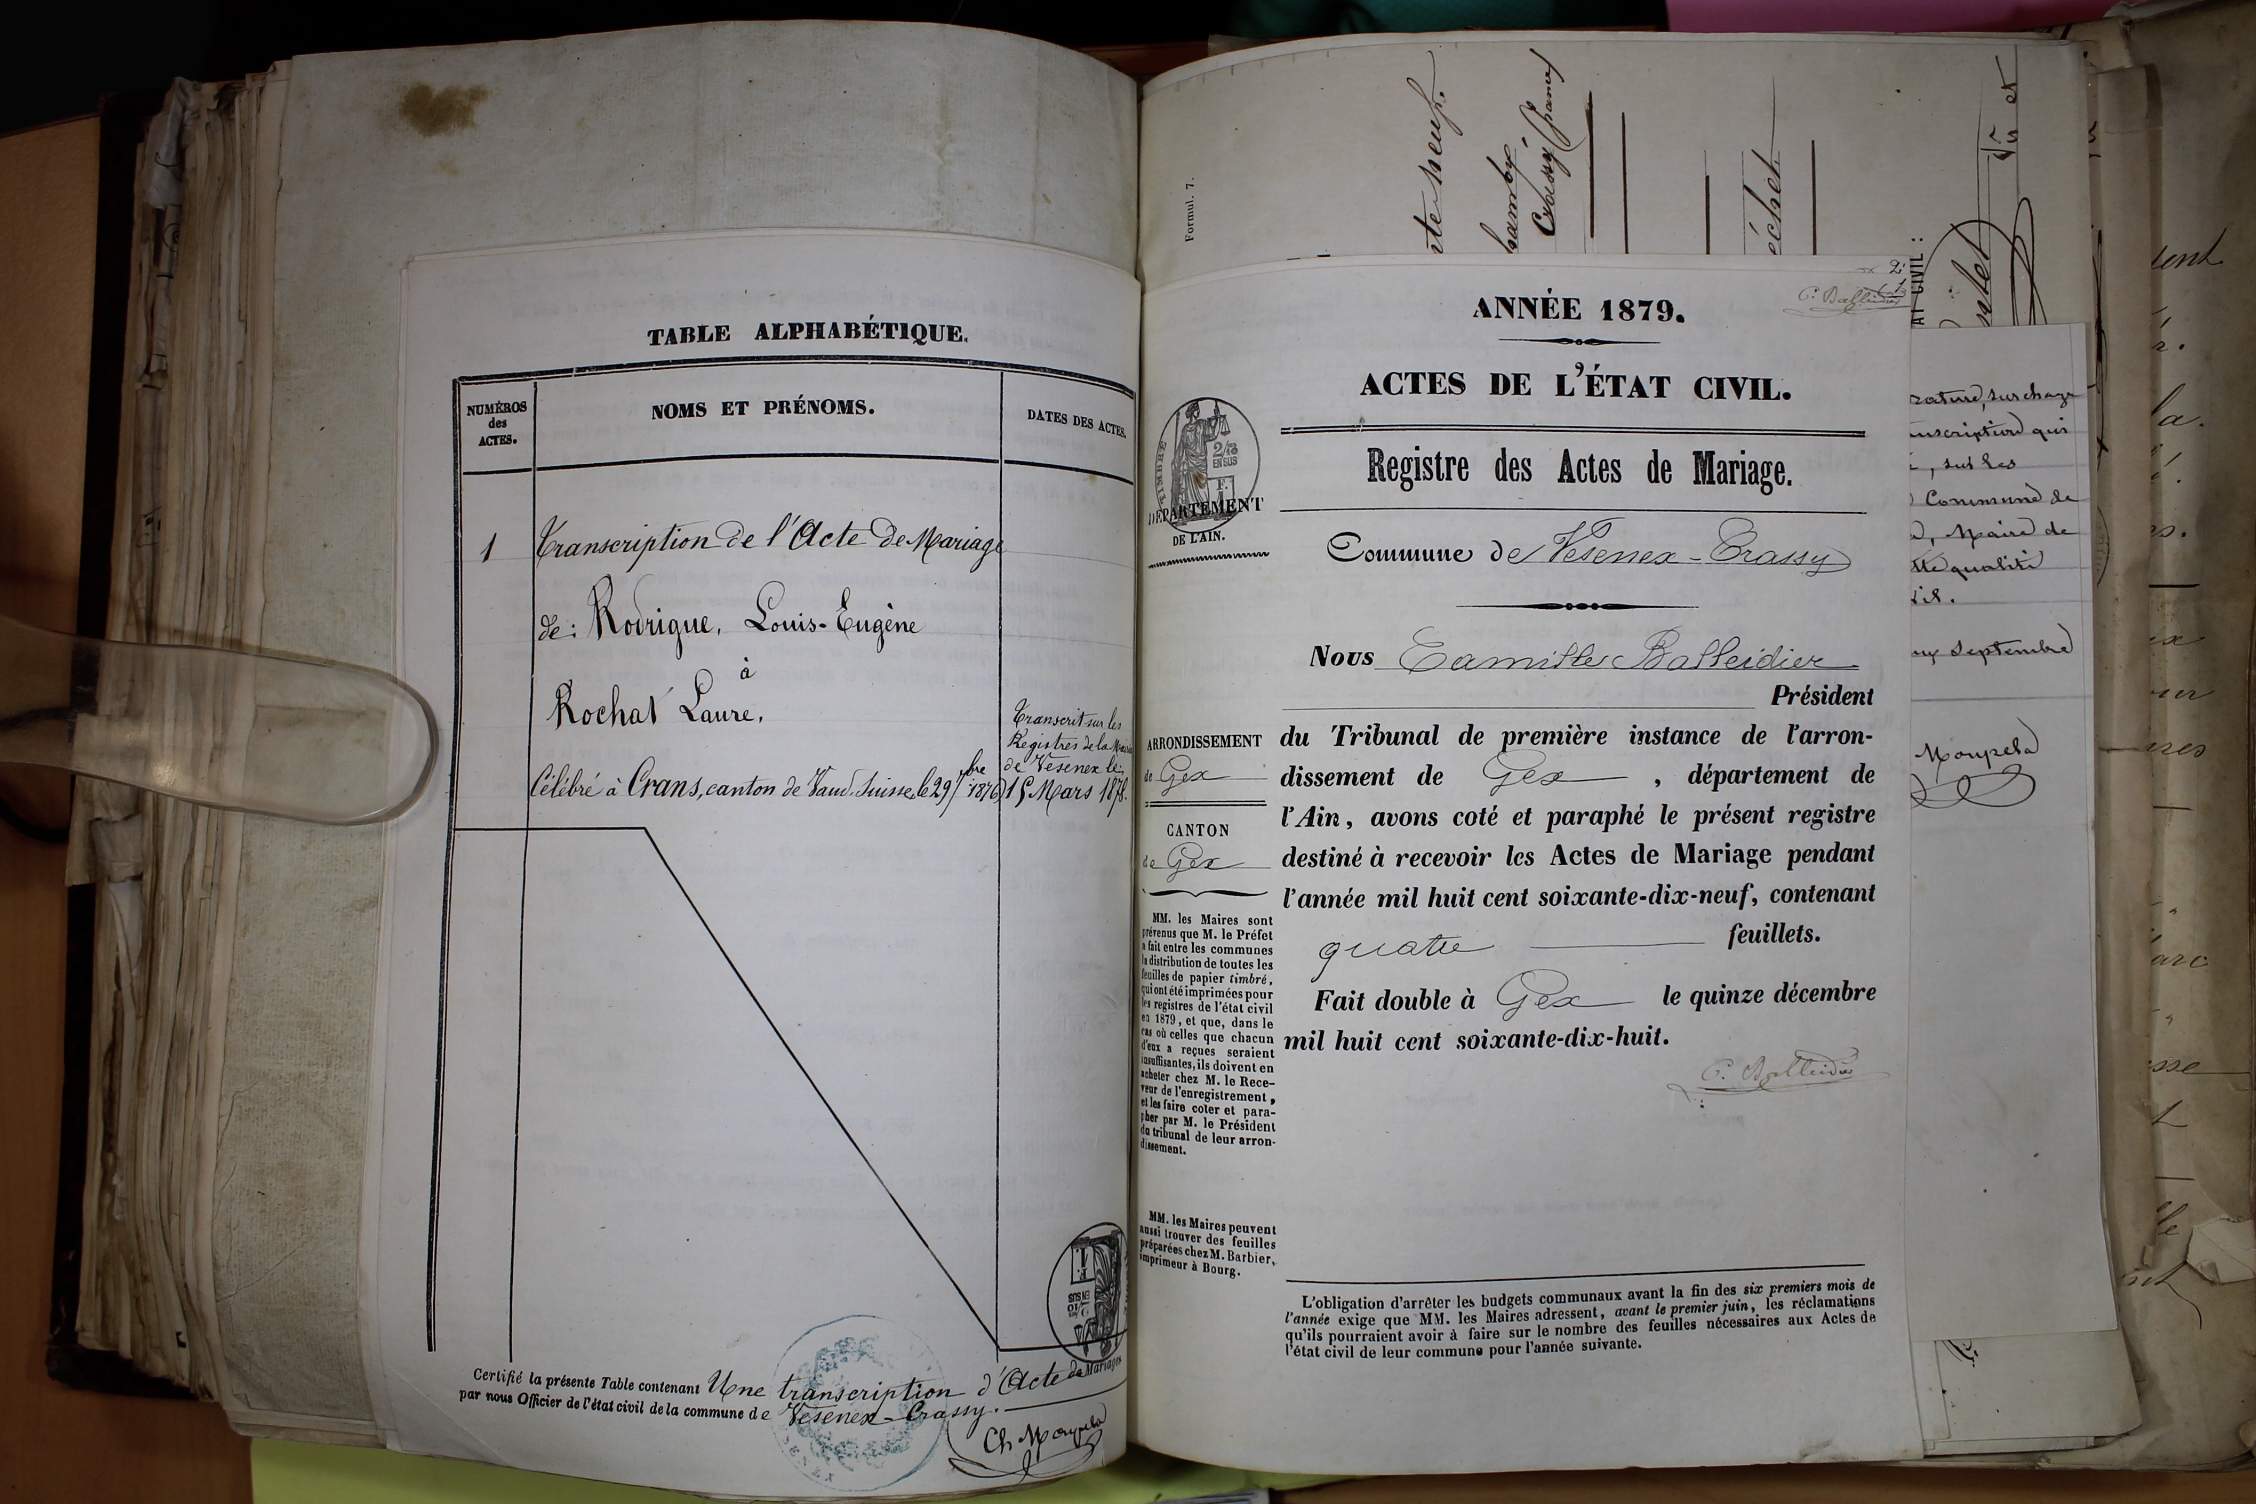 TABLE ALPHABÉTIQUE.
NUMÉROS
des
ACTES.
NOMS ET PRÉNOMS.
DATES DES ACTES.
1
Transcription de l'Acte de Mariage
de: Rodrigue, Louis-Eugène
à
Rochat Laure,
Célébré à Crans, canton de Vaud, Suisse, le 29 7bre 1876
Transcrit sur les
Registres de la
de Vesenex le
15 Mars 1878.
Certifié la présente Table contenant Une transcription d'Acte de Mariages
par nous Officier de l'état civil de la commune de Vesenex-Crassy.
Formul. 7.
C. Balleidier
ANNÉE 1879.
ACTES DE L'ÉTAT CIVIL.
Registre des Actes de Mariage.
Commune de Vesenex-Crassy
TIMBRE
2/10
EN SUS
DÉPARTEMENT
DE L'AIN.
Nous Camille Balleidier
Président
du Tribunal de première instance de l'arron-
dissement de Gex, département de
l'Ain, avons coté et paraphé le présent registre
destiné à recevoir les Actes de Mariage pendant
l'année mil huit cent soixante-dix-neuf, contenant
quatre feuillets.
Fait double à Gex le quinze décembre
mil huit cent soixante-dix-huit.
C. Balleidier
ARRONDISSEMENT
de Gex
CANTON
de Gex
MM. les Maires sont
prévenus que M. le Préfet
a fait entre les communes
la distribution de toutes les
feuilles de papier timbré,
qui ont été imprimées pour
les registres de l'état civil
en 1879, et que, dans le
cas où celles que chacun
d'eux a reçues seraient
insuffisantes, ils doivent en
acheter chez M. le Rece-
veur de l'enregistrement,
et les faire coter et para-
pher par M. le Président
du tribunal de leur arron-
dissement.
MM. les Maires peuvent
aussi trouver des feuilles
préparées chez M. Barbier,
imprimeur à Bourg.
L'obligation d'arrêter les budgets communaux avant la fin des six premiers mois de
l'année exige que MM. les Maires adressent, avant le premier juin, les réclamations
qu'ils pourraient avoir à faire sur le nombre des feuilles nécessaires aux Actes de
l'état civil de leur commune pour l'année suivante.
Commune de
Maire de
qualité
Septembre